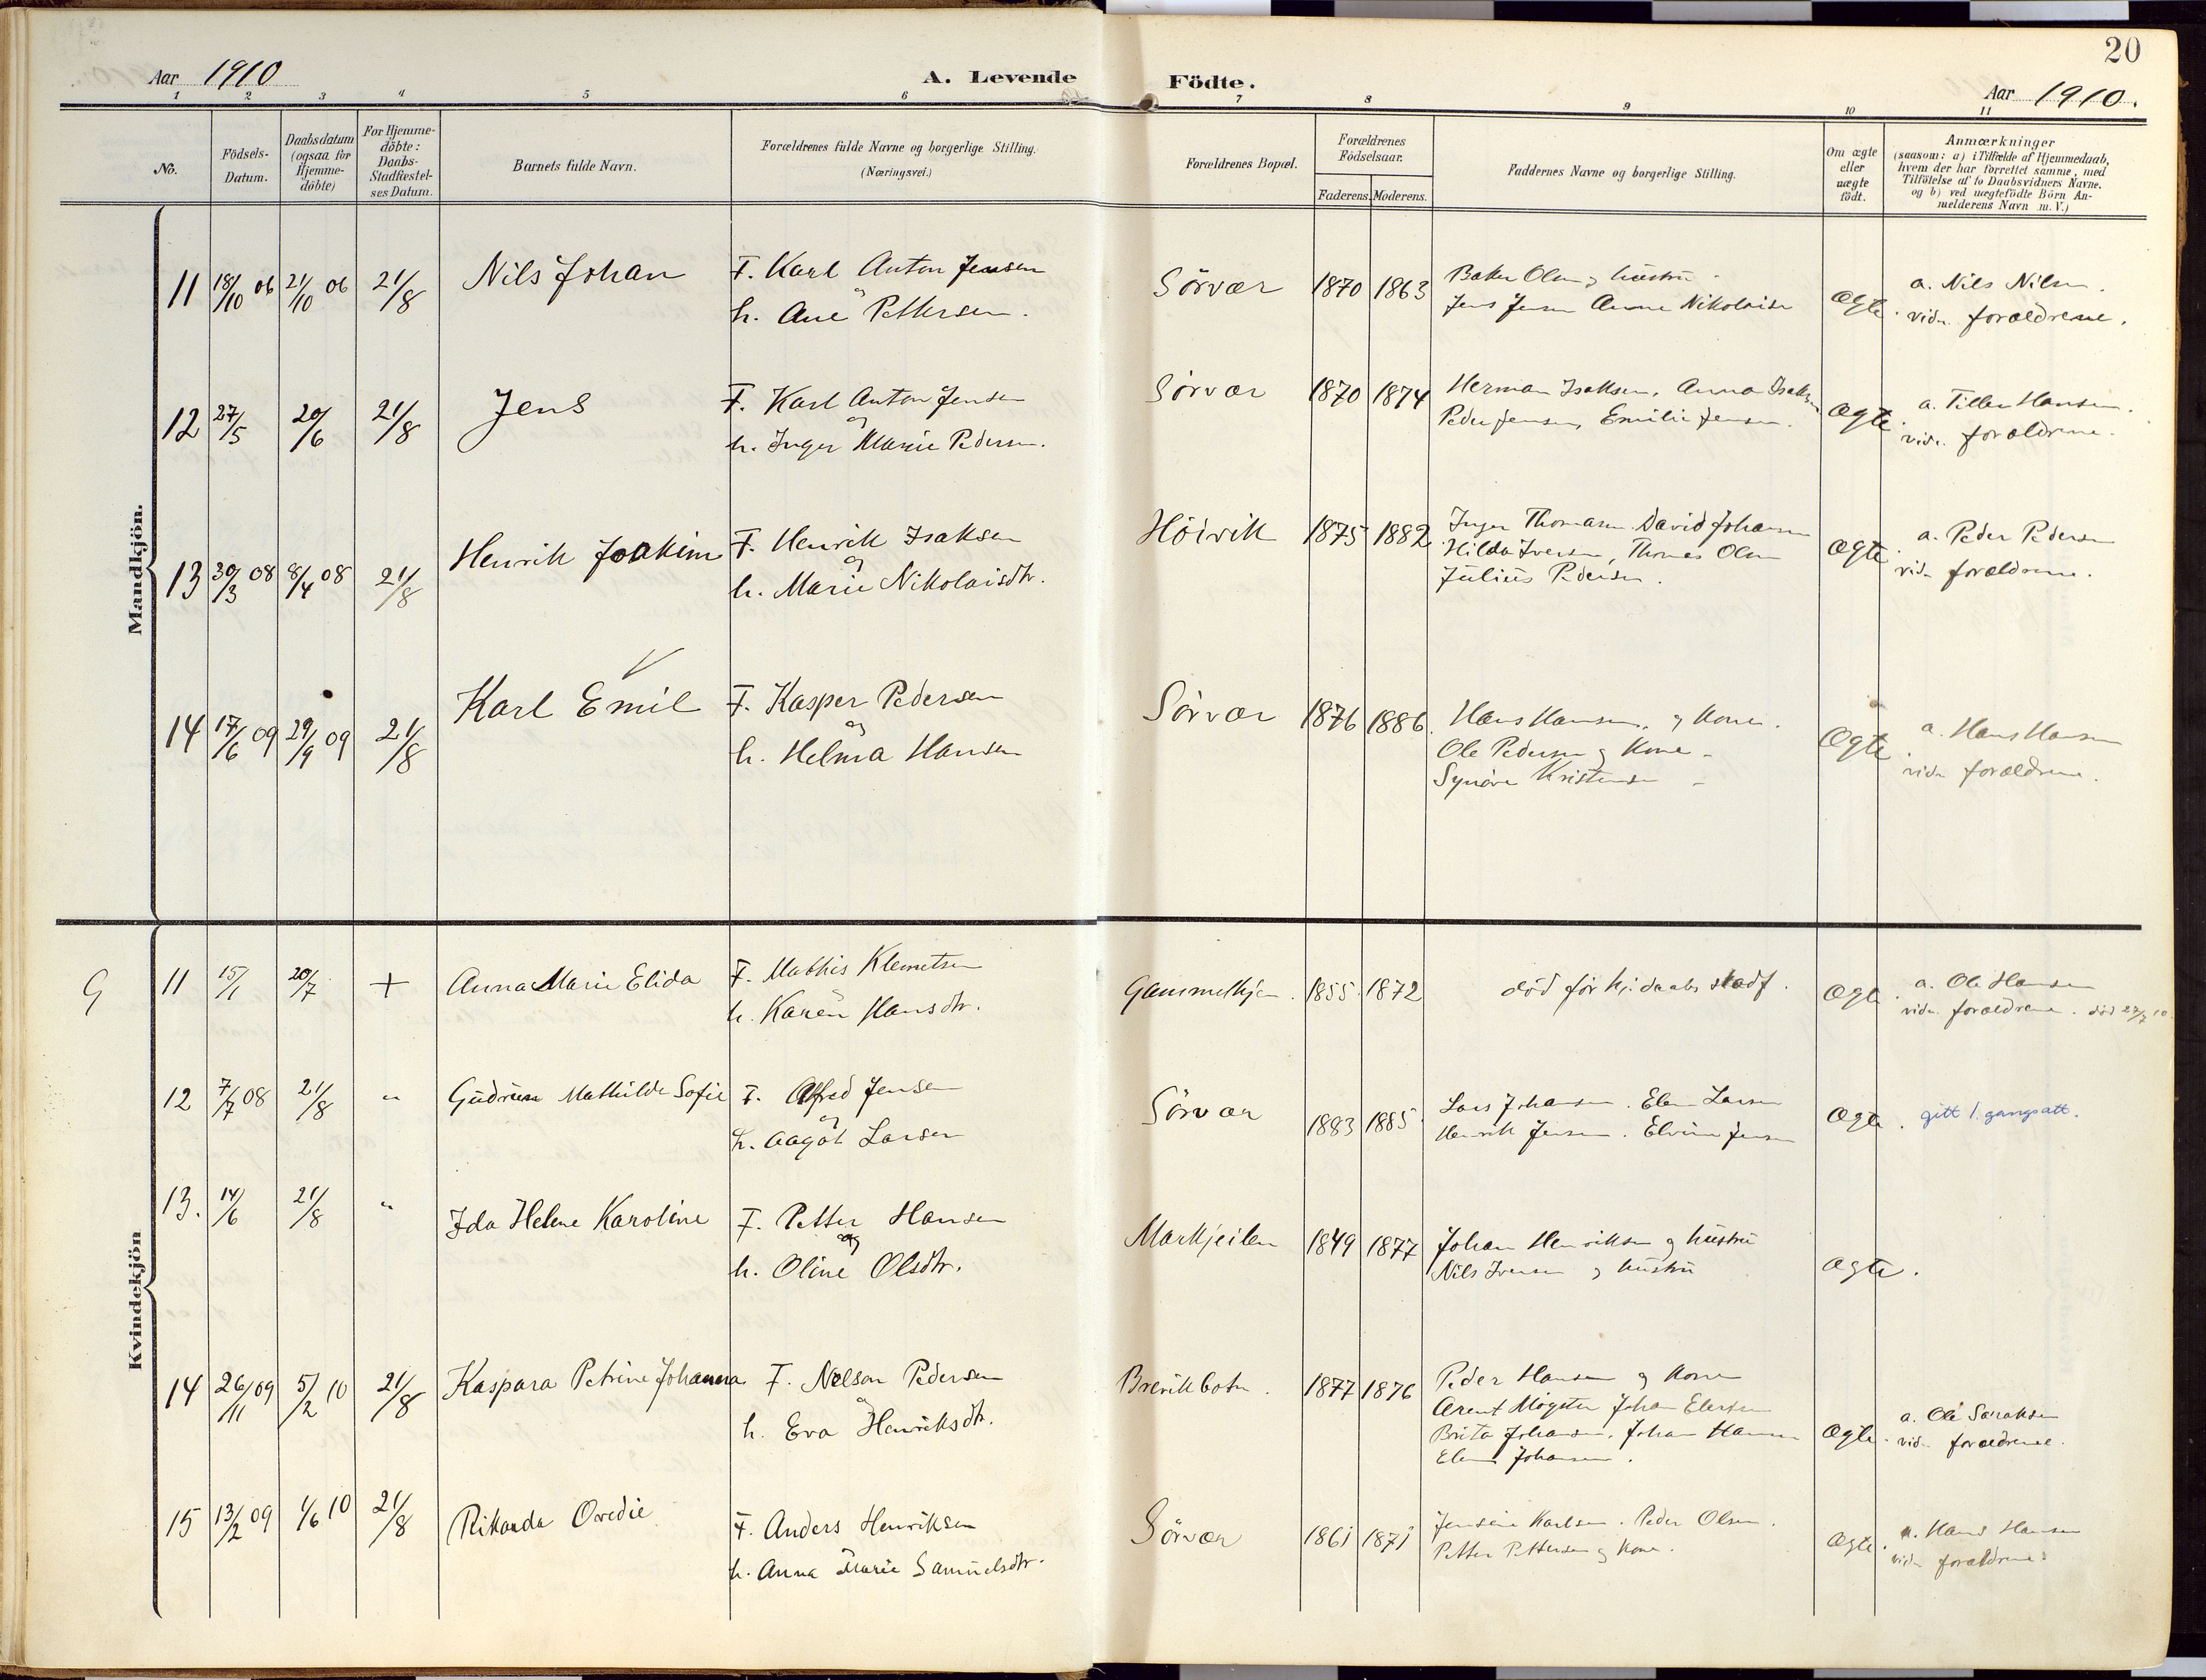 20
Aar 1910 A. Levende Födte. Aar 1910.
1 2 3 4 5 6 7 8 9 10 11
No.
Födsels-
Datum.
Daabsdatum
(ogsaa for
Hjemme-
döbte)
For Hjemme-
döbte:
Daabs-
Stadfæstel-
ses Datum.
Barnets fulde Navn.
Forældrenes fulde Navne og borgerlige Stilling.
(Næringsvei.)
Forældrenes Bopæl.
Forældrenes
Födselsaar.
Faderens. Moderens.
Faddernes Navne og borgerlige Stilling.
Om ægte
eller
uægte
födt.
Anmærkninger
(saasom: a) i Tilfælde af Hjemmedaab,
hvem der har forrettet samme, med
Tilföielse af to Daabsvidners Navne.
og b) ved uægtefödte Börn An-
melderens Navn m. V.)
Mandkjön.
11 18/10 06 21/10 06 21/8 Nils Johan F. Karl Anton Jensen
og
h. Ane Pettersen.
Sörvær 1870 1863 Olsen og hustru
Jens Jensen Anne Nikolaisen
Ægte. a. Nils Nilsen.
vidn. forældrene.
12 27/5 20/6 21/8 Jens F. Karl Anton Jensen
og
h. Inger Marie Pedersen.
Sörvær 1870 1874 Herman Isaksen, Anna Isaksen
Peder Jensen, Emilie Jensen.
Ægte. a. Hansen.
vidn. forældrene.
13 30/3 08 8/4 08 21/8 Henrik Joakim F. Henrik Isaksen
og
h. Marie Nikolaisdtr.
Höivik 1875 1882 Inger Thomasen David Johansen
Hilda Iversen, Thomas Olsen
Julius Pedersen.
Ægte. a. Peder Pedersen
vidn. forældrene.
14 17/6 09 29/9 09 21/8 Karl Emil F. Kasper Pedersen
og
h. Helma Hansen
Sörvær 1876 1886. Hans Hansen og Kone.
Ole Pedersen og Kone
Synöve Kristensen
Ægte. a. Hans Hansen
vidn forældrene.
Kvindekjön
G 11 15/1 20/7 + Anna Marie Elida F. Mathis Klemetsen
og
h. Karen Hansdtr.
1855. 1872 död för hj. daabs stadf.
Ægte. a. Ole Hansen
vidn. forældrene. död 27/7 10.
12 7/7 08 21/8 " Gudrun Mathilde Sofie F. Alfred Jensen
og
h. Aagot Larsen
Sörvær 1883 1885. Lars Johansen. Elen Larsen
Henrik Jensen. Jensen
Ægte. gitt 1. gangsatt.
13. 14/6 21/8 " Ida Helene Karoline F. Petter Hansen
og
h. Oline Olsdtr.
Markjeilen 1849 1877 Johan Henriksen og hustru
Nils Iversen og hustru
Ægte.
14 26/11 09 5/2 10 21/8 Kaspara Petrine Johanna F. Nelson Pedersen
og
h. Eva Henriksdtr.
Breivikbotn. 1877 1876 Peder Hansen og Kone
Arent Mögster Johan Elertsen
Brita Johansen. Johan Hansen
Johansen.
Ægte. a. Ole
vidn forældrene.
15 13/2 09 1/6 10 21/8 Rikarda Ovedie F. Anders Henriksen
h. Anna Marie Samuelsdtr.
Sörvær 1861 1871 Karlsen. Peder Olsen.
Petter Pettersen og Kone.
Ægte. a. Hans Hansen
vidn forældrene.